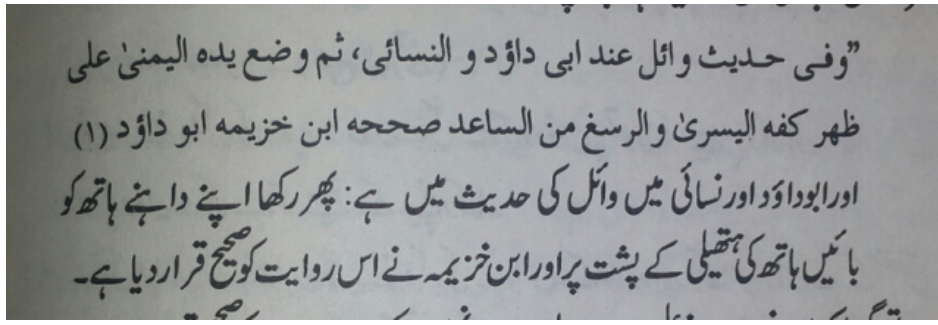 ”وفی حدیث وائل عند ابی داؤد و النسائی، ثم وضع یدہ الیمنیٰ علی
ظهر کفه الیسریٰ والرسغ من الساعد صححه ابن خزیمه ابو داؤد (۱)
اورابوداؤد اورنسائی میں وائل کی حدیث میں ہے: پھر رکھا اپنے داہنے ہاتھ کو
بائیں ہاتھ کی ہتھیلی کے پشت پر اور ابن خزیمہ نے اس روایت کو صحیح قرار دیا ہے۔